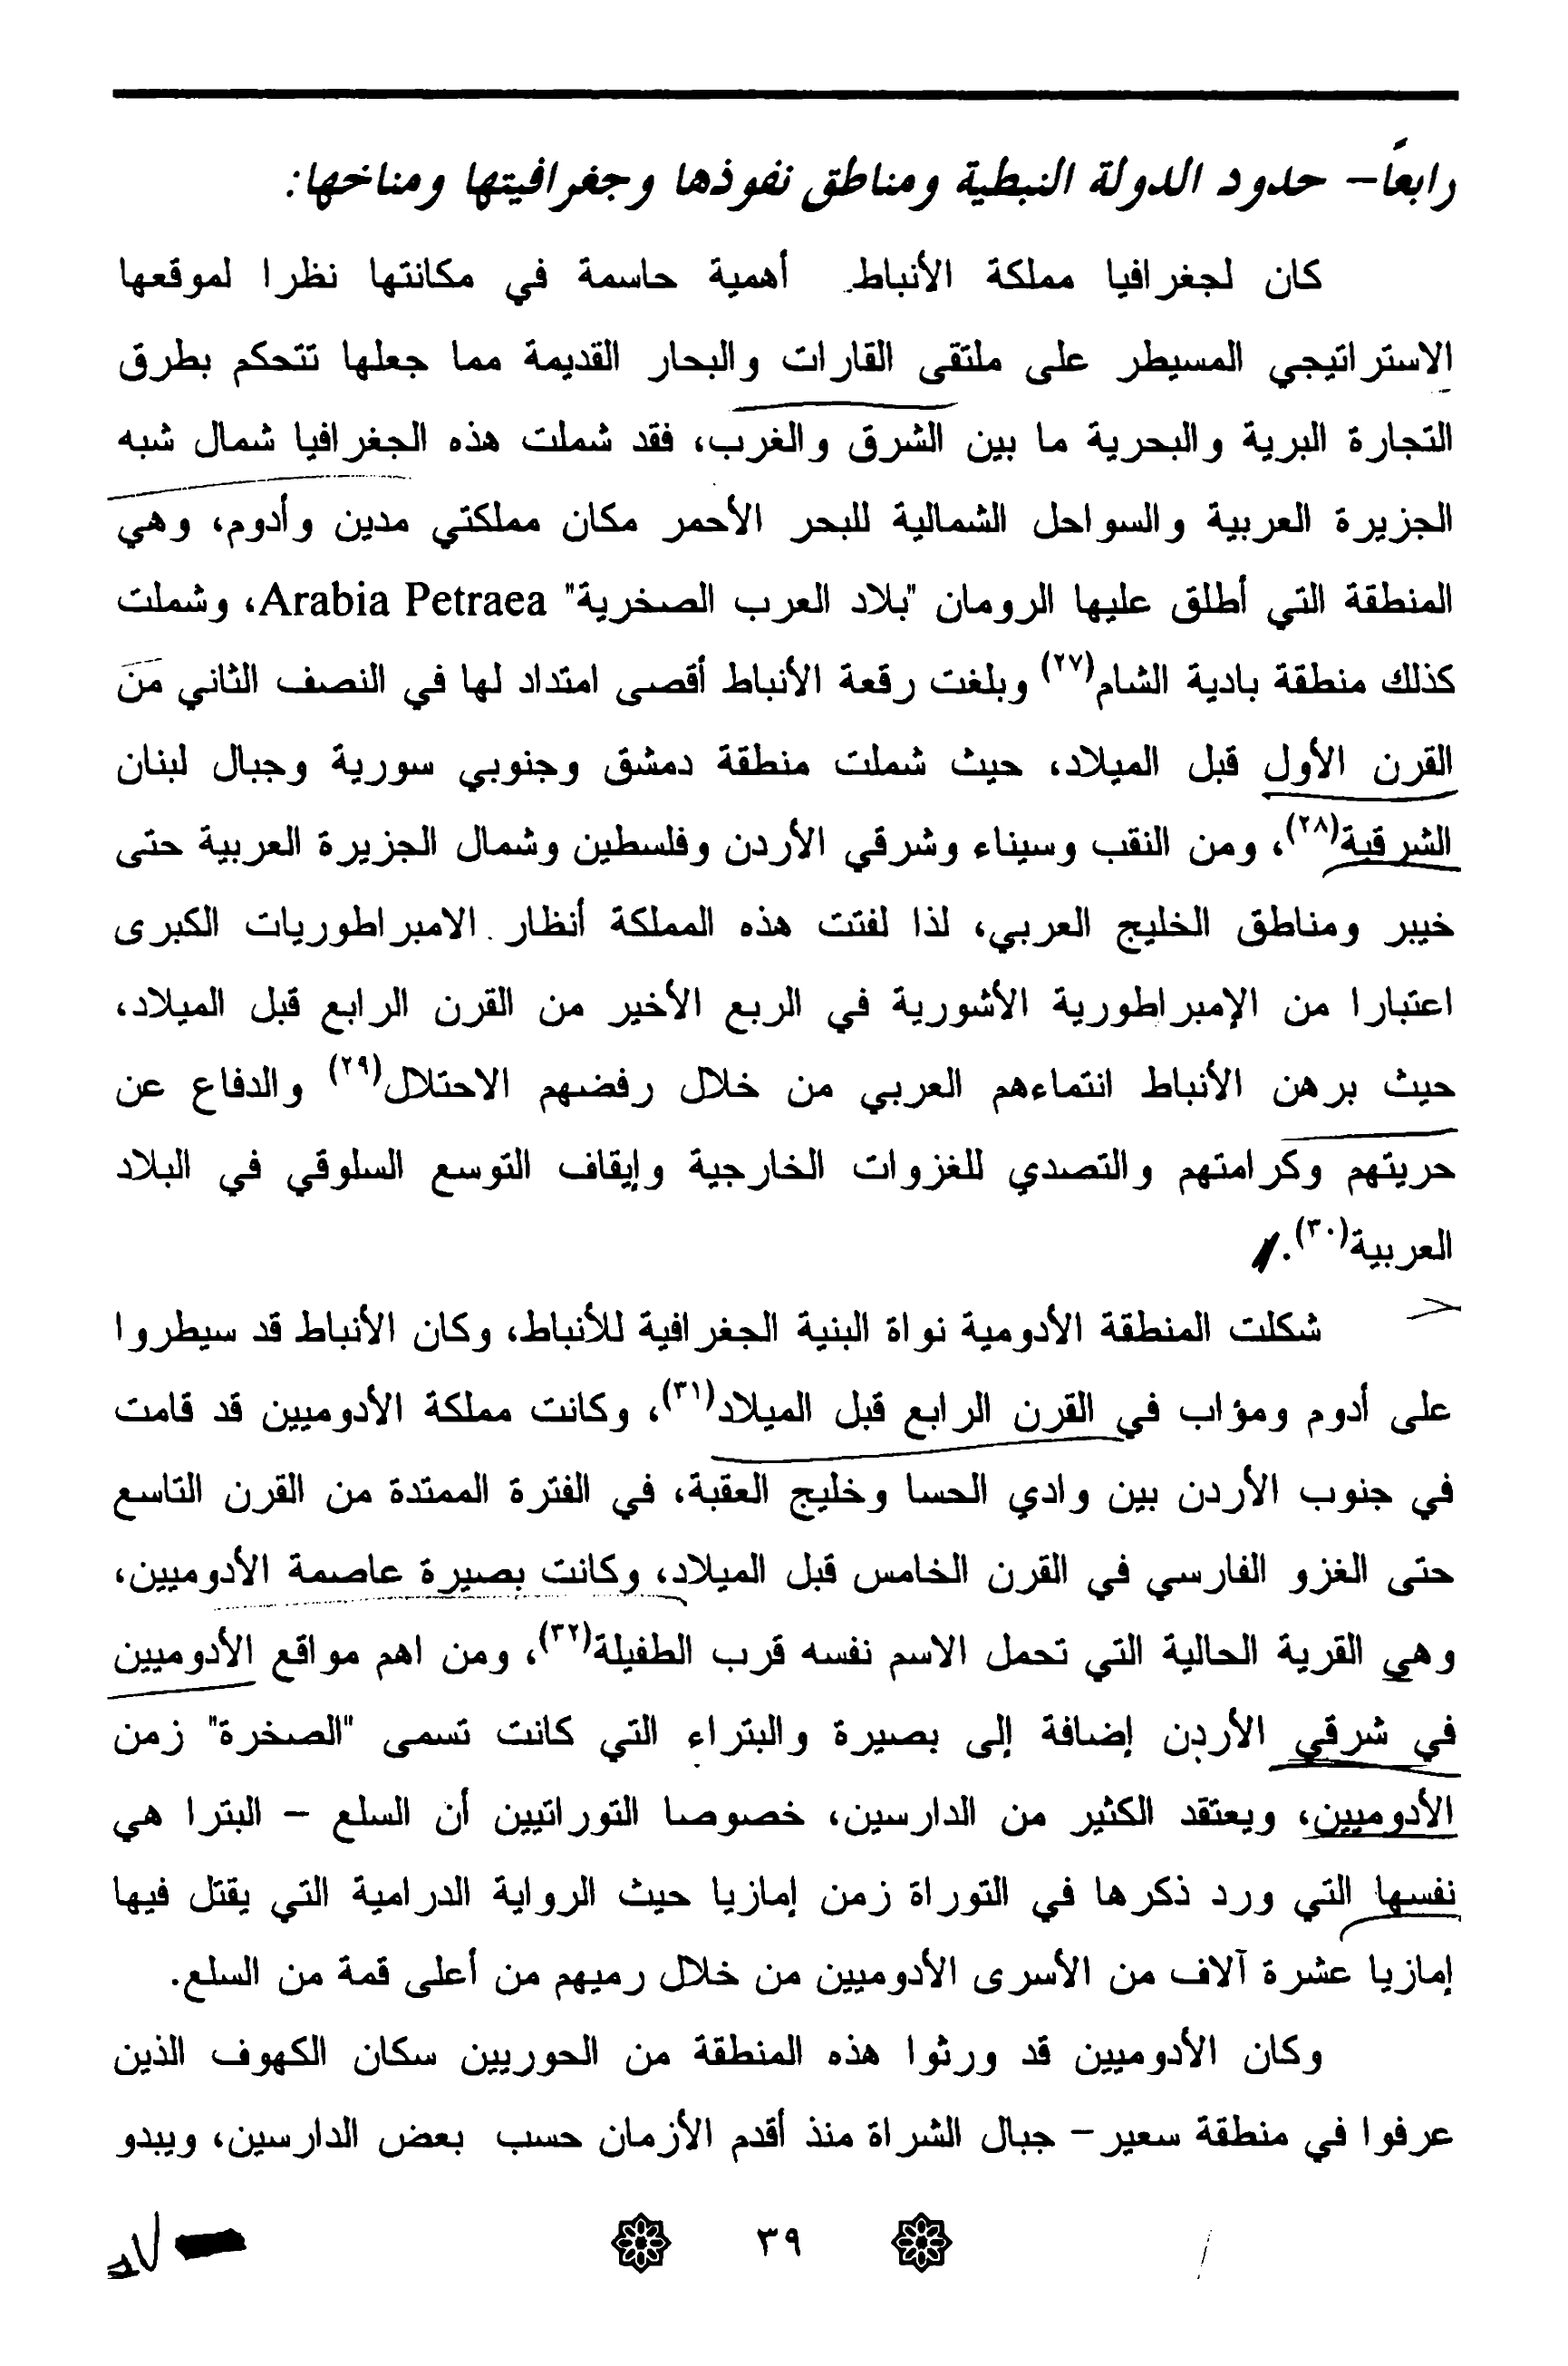 رابعاً- حدود الدولة النبطية ومناطق نفوذها وجغرافيتها ومناخها:
كان لجغرافيا مملكة الأنباط أهمية حاسمة في مكانتها نظرا لموقعها
الاستراتيجي المسيطر على ملتقى القارات والبحار القديمة مما جعلها تتحكم بطرق
التجارة البرية والبحرية ما بين الشرق والغرب، فقد شملت هذه الجغرافيا شمال شبه
الجزيرة العربية والسواحل الشمالية للبحر الأحمر مكان مملكتي مدين وأدوم، وهي
المنطقة التي أطلق عليها الرومان "بلاد العرب الصخرية" Arabia Petraea، وشملت
كذلك منطقة بادية الشام(٢٧) وبلغت رقعة الأنباط أقصى امتداد لها في النصف الثاني من
القرن الأول قبل الميلاد، حيث شملت منطقة دمشق وجنوبي سورية وجبال لبنان
الشرقية(٢٨)، ومن النقب وسيناء وشرقي الأردن وفلسطين وشمال الجزيرة العربية حتى
خيبر ومناطق الخليج العربي، لذا لفتت هذه المملكة أنظار الامبراطوريات الكبرى
اعتبارا من الإمبراطورية الأشورية في الربع الأخير من القرن الرابع قبل الميلاد،
حيث برهن الأنباط انتماءهم العربي من خلال رفضهم الاحتلال(٢٩) والدفاع عن
حريتهم وكرامتهم والتصدي للغزوات الخارجية وإيقاف التوسع السلوقي في البلاد
العربية(٣٠).
شكلت المنطقة الأدومية نواة البنية الجغرافية للأنباط، وكان الأنباط قد سيطروا
على أدوم ومؤاب في القرن الرابع قبل الميلاد(٣١)، وكانت مملكة الأدوميين قد قامت
في جنوب الأردن بين وادي الحسا وخليج العقبة، في الفترة الممتدة من القرن التاسع
حتى الغزو الفارسي في القرن الخامس قبل الميلاد، وكانت بصيرة عاصمة الأدوميين،
وهي القرية الحالية التي تحمل الاسم نفسه قرب الطفيلة(٣٢)، ومن اهم مواقع الأدوميين
في شرقي الأردن إضافة إلى بصيرة والبتراء التي كانت تسمى "الصخرة" زمن
الأدوميين، ويعتقد الكثير من الدارسين، خصوصا التوراتيين أن السلع - البترا هي
نفسها التي ورد ذكرها في التوراة زمن إمازيا حيث الرواية الدرامية التي يقتل فيها
إمازيا عشرة آلاف من الأسرى الأدوميين من خلال رميهم من أعلى قمة من السلع.
وكان الأدوميين قد ورثوا هذه المنطقة من الحوريين سكان الكهوف الذين
عرفوا في منطقة سعير- جبال الشراة منذ أقدم الأزمان حسب بعض الدارسين، ويبدو
٣٩